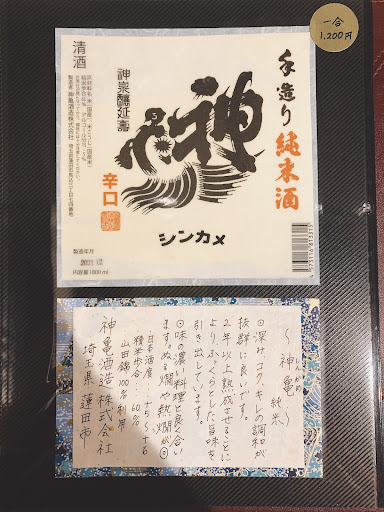 一合
1,200円
手造り 純米酒
神
亀
シンカメ
神泉醸延壽
辛口
清酒
原材料名 米(国産)、米こうじ(国産米)
製造者 神亀酒造株式会社
製造年月
内容量1800ml
〜神亀 純米〜
しんかめ
◎深み、コク、キレの調和が
抜群に良いです。
2年以上熟成させることに
よりふっくらとした旨味を
引き出しています。
◎味の濃い料理と良く合い
ます。ぬる燗や熱燗が◎
日本酒度…+5〜+6
精米歩合…60%
山田錦100%利用
神亀酒造株式会社
埼玉県 蓮田市